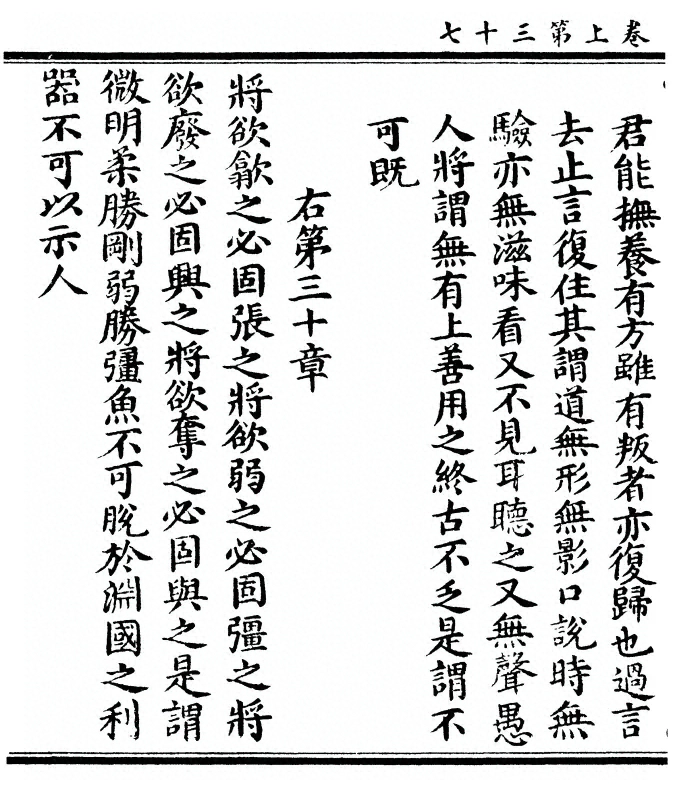 卷上第三十七
君能撫養有方雖有叛者亦復歸也過言
去止言復住其謂道無形無影口說時無
驗亦無滋味看又不見耳聽之又無聲愚
人將謂無有上善用之終古不乏是謂不
可既
右第三十章
將欲歙之必固張之將欲弱之必固彊之將
欲廢之必固興之將欲奪之必固與之是謂
微明柔勝剛弱勝彊魚不可脫於淵國之利
器不可以示人